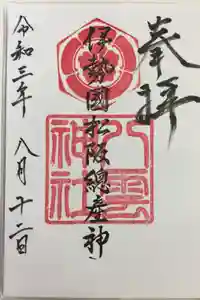 奉拝
伊勢國松阪總産神
八雲神社
令和三年 八月十二日